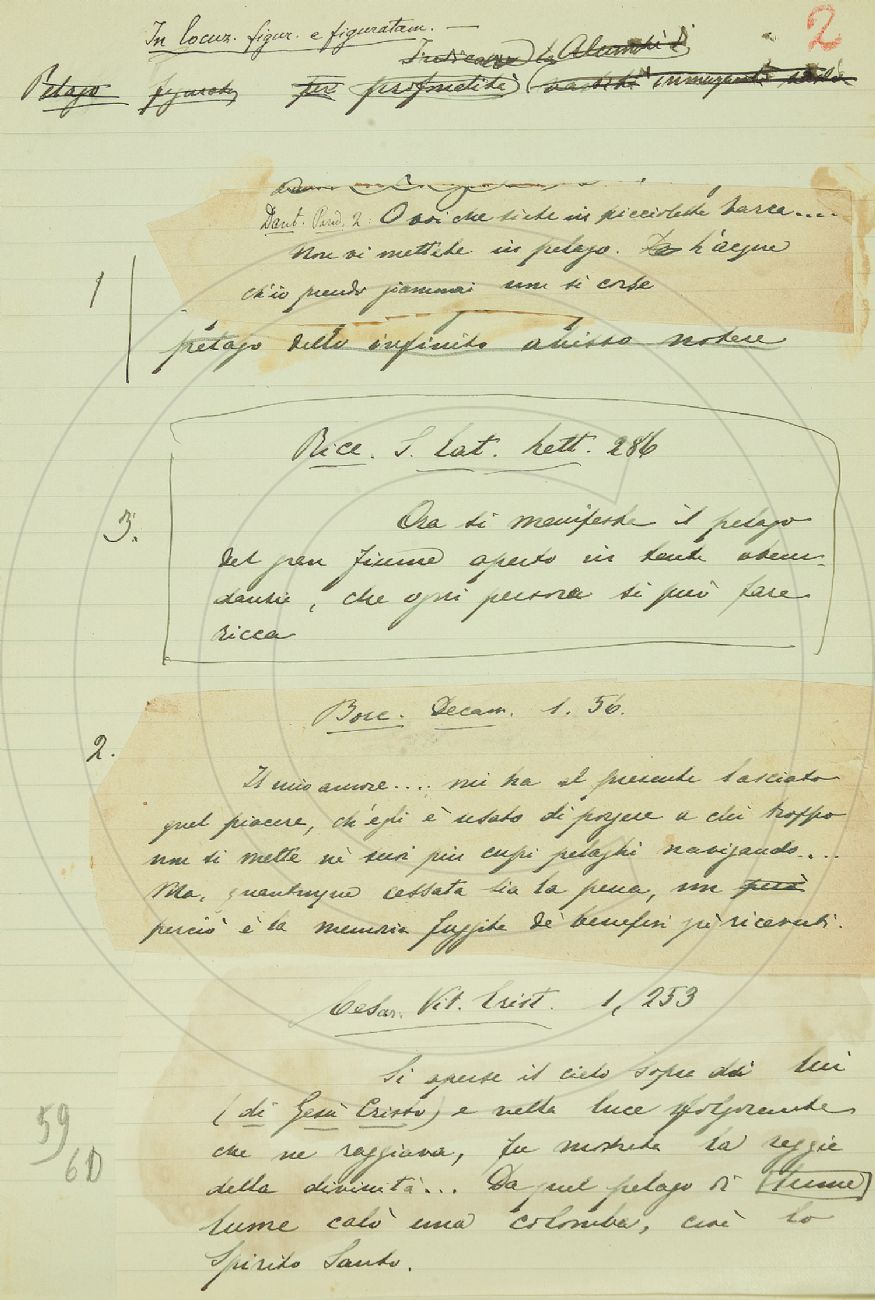 2
In locuz. figur. e figuratam. —
Pelago figurat. per profondità
Dant. Parad. 2. O voi che siete in piccioletta barca....
Non vi mettete in pelago. L'acqua
ch'io prendo giammai non si corse
1
pelago dello infinito abisso
Ricc. S. Cat. Lett. 286
3.
Ora si manifesta il pelago
del gran fiume aperto in tanta abbon-
danzia, che ogni persona si può fare
ricca
Bocc. Decam. 1. 56.
2.
Il mio amore.... mi ha al presente lasciato
quel piacere, ch'egli è usato di porgere a chi troppo
non si mette ne' suoi più cupi pelaghi navigando....
Ma, quantunque cessata sia la pena, non però
perciò è la memoria fuggita de' benefizi già ricevuti.
Cesar. Vit. Crist. 1, 253
Si aperse il cielo sopra di lui
(di Gesù Cristo) e nella luce sfolgorante
59
che ne raggiava, fu mostrata la reggia
60
della divinità... Da quel pelago di lume
lume calò una colomba, cioè lo
Spirito Santo.